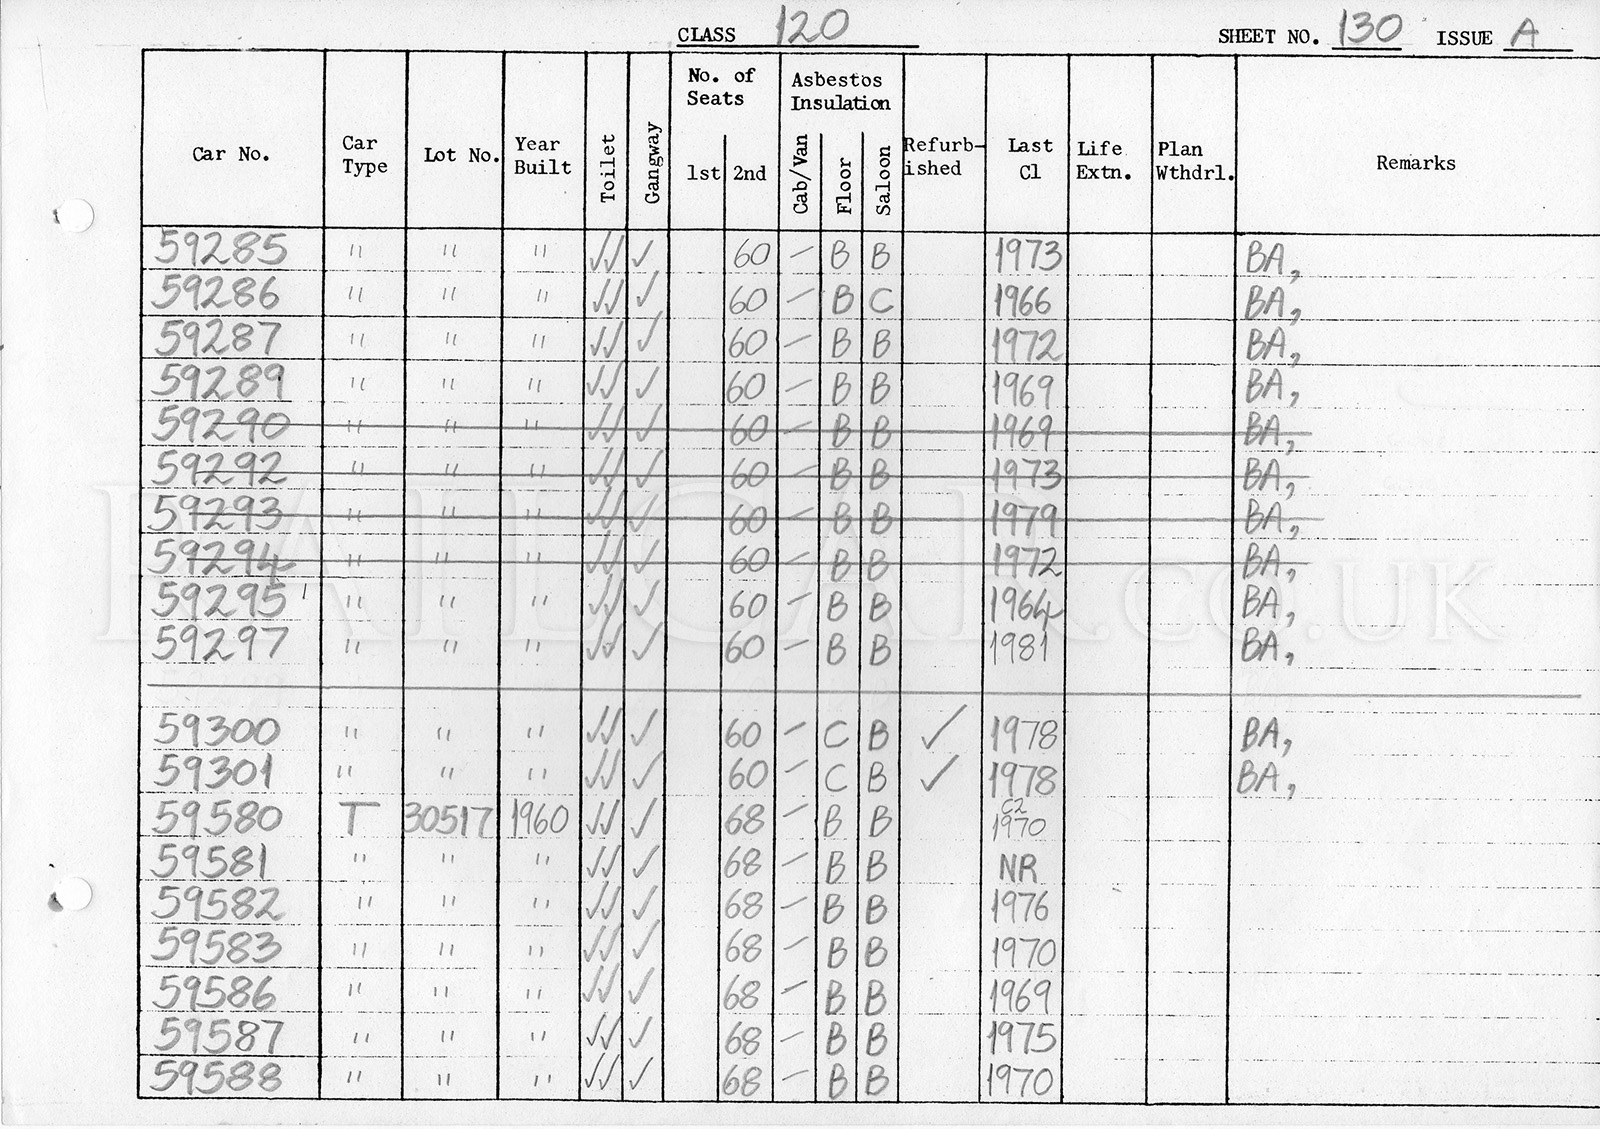 CLASS 120 SHEET NO. 130 ISSUE A
Car No. Car Type Lot No. Year Built Toilet Gangway No. of Seats 1st 2nd Asbestos Insulation Cab/Van Floor Saloon Refurb-ished Last Cl Life Extn. Plan Wthdrl. Remarks
59285 " " " ✓✓ ✓ 60 – B B 1973 BA,
59286 " " " ✓✓ ✓ 60 – B C 1966 BA,
59287 " " " ✓✓ ✓ 60 – B B 1972 BA,
59289 " " " ✓✓ ✓ 60 – B B 1969 BA,
59290 " " " ✓✓ ✓ 60 – B B 1969 BA,
59292 " " " ✓✓ ✓ 60 – B B 1973 BA,
59293 " " " ✓✓ ✓ 60 – B B 1979 BA,
59294 " " " ✓✓ ✓ 60 – B B 1972 BA,
59295 " " " ✓✓ ✓ 60 – B B 1964 BA,
59297 " " " ✓✓ ✓ 60 – B B 1981 BA,
59300 " " " ✓✓ ✓ 60 – C B ✓ 1978 BA,
59301 " " " ✓✓ ✓ 60 – C B ✓ 1978 BA,
59580 T 30517 1960 ✓✓ ✓ 68 – B B C2 1970
59581 " " " ✓✓ ✓ 68 – B B NR
59582 " " " ✓✓ ✓ 68 – B B 1976
59583 " " " ✓✓ ✓ 68 – B B 1970
59586 " " " ✓✓ ✓ 68 – B B 1969
59587 " " " ✓✓ ✓ 68 – B B 1975
59588 " " " ✓✓ ✓ 68 – B B 1970
RAILCAR.CO.UK